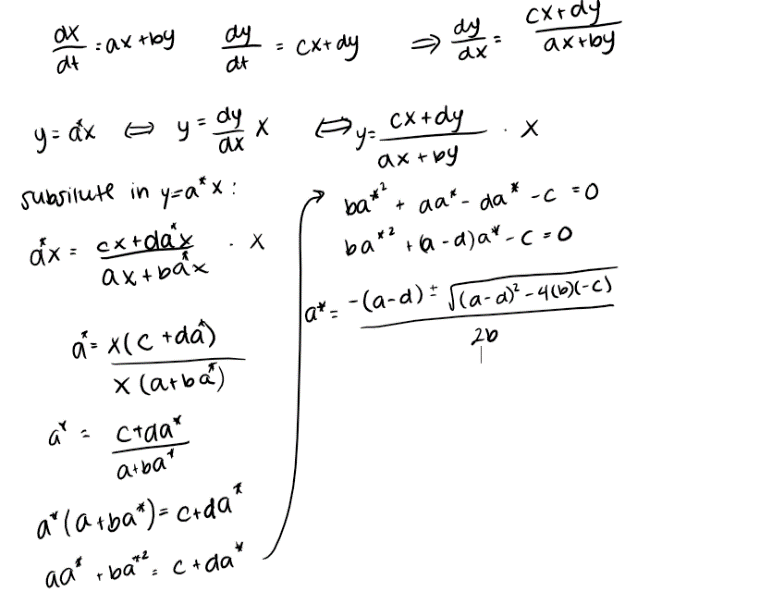 dx/dt = ax + by    dy/dt = cx + dy    ⇒ dy/dx = (cx + dy)/(ax + by)
y = a*x ⇔ y = dy/dx x    ⇔ y = (cx + dy)/(ax + by) · x
subsilute in y=a*x :
a*x = (cx + da*x)/(ax + ba*x) · x
a* = x(c + da*)/x(a + ba*)
a* = (c + da*)/(a + ba*)
a*(a + ba*) = c + da*
aa* + ba*² = c + da*
ba*² + aa* - da* - c = 0
ba*² + (a - d)a* - c = 0
a* = (-(a-d) ± √((a-d)² - 4(b)(-c)))/2b